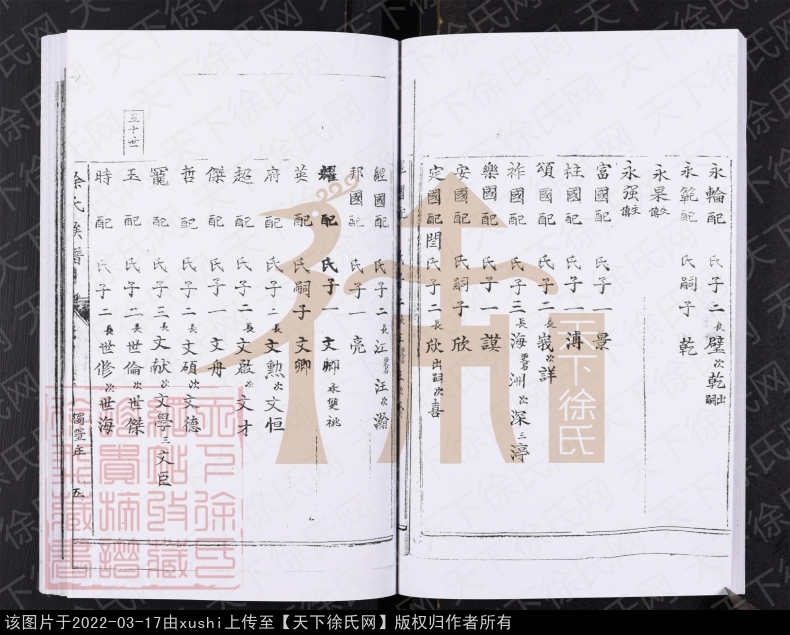 永輪配 氏子二長璧次乾出嗣
永範配 氏嗣子乾
永杲文傳
永强文傳
富國配 氏子一景
柱國配 氏子一溥
頌國配 氏子二長峩次詳
祚國配 氏子三長海 洲次深三渟
樂國配 氏子一謨
安國配 氏嗣子欣
定國配閏氏子二長欣出嗣次喜
經國配 氏子二長江 汪次瀚
邦國配 氏子一亮
耀配 氏子一文卿承雙祧
英配 氏嗣子文卿
府配 氏子二長文勲次文恒
超配 氏子二長文啟次文才
傑配 氏子一文舟
哲配 氏子二長文碩次文德
寵配 氏子三長文献次文學三文臣
五十世
玉配 氏子二長世倫次世傑
時配 氏子二長世修次世海
徐氏族譜
五
天下徐氏
天下徐氏网
该图片于2022-03-17由xushi上传至【天下徐氏网】版权归作者所有